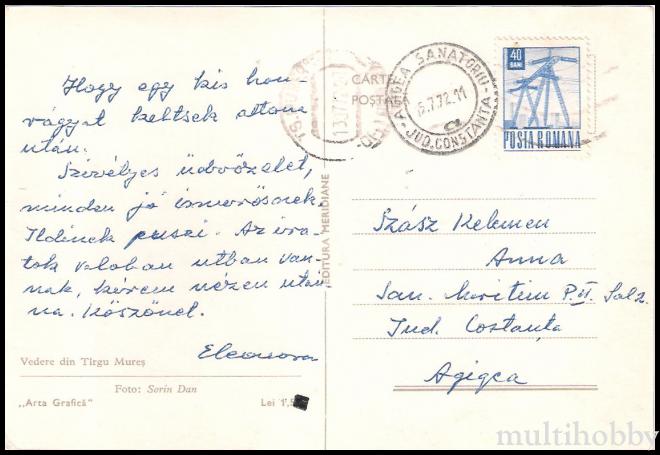 Hogy egy kis hon-
vágyat keltsek
után.
Szivélyes üdvözlet,
minden jó ismerősnek.
Ildinek puszi. Az ira-
tok valoban utban van-
nak, kérem nézen után
na. Köszönet.
Eleonora
Vedere din Tîrgu Mureș
Foto: Sorin Dan
„Arta Grafică"
Lei 1,5
EDITURA MERIDIANE
CARTE
POȘTALĂ
AGIGEA SANATORIU
5.7.72.11
JUD. CONSTANTA
40
BANI
POSTA ROMANA
Szász Kelemen
Anna
San. Maritim P.II. Sal 2.
Jud. Costanța
Agigea
multihobby